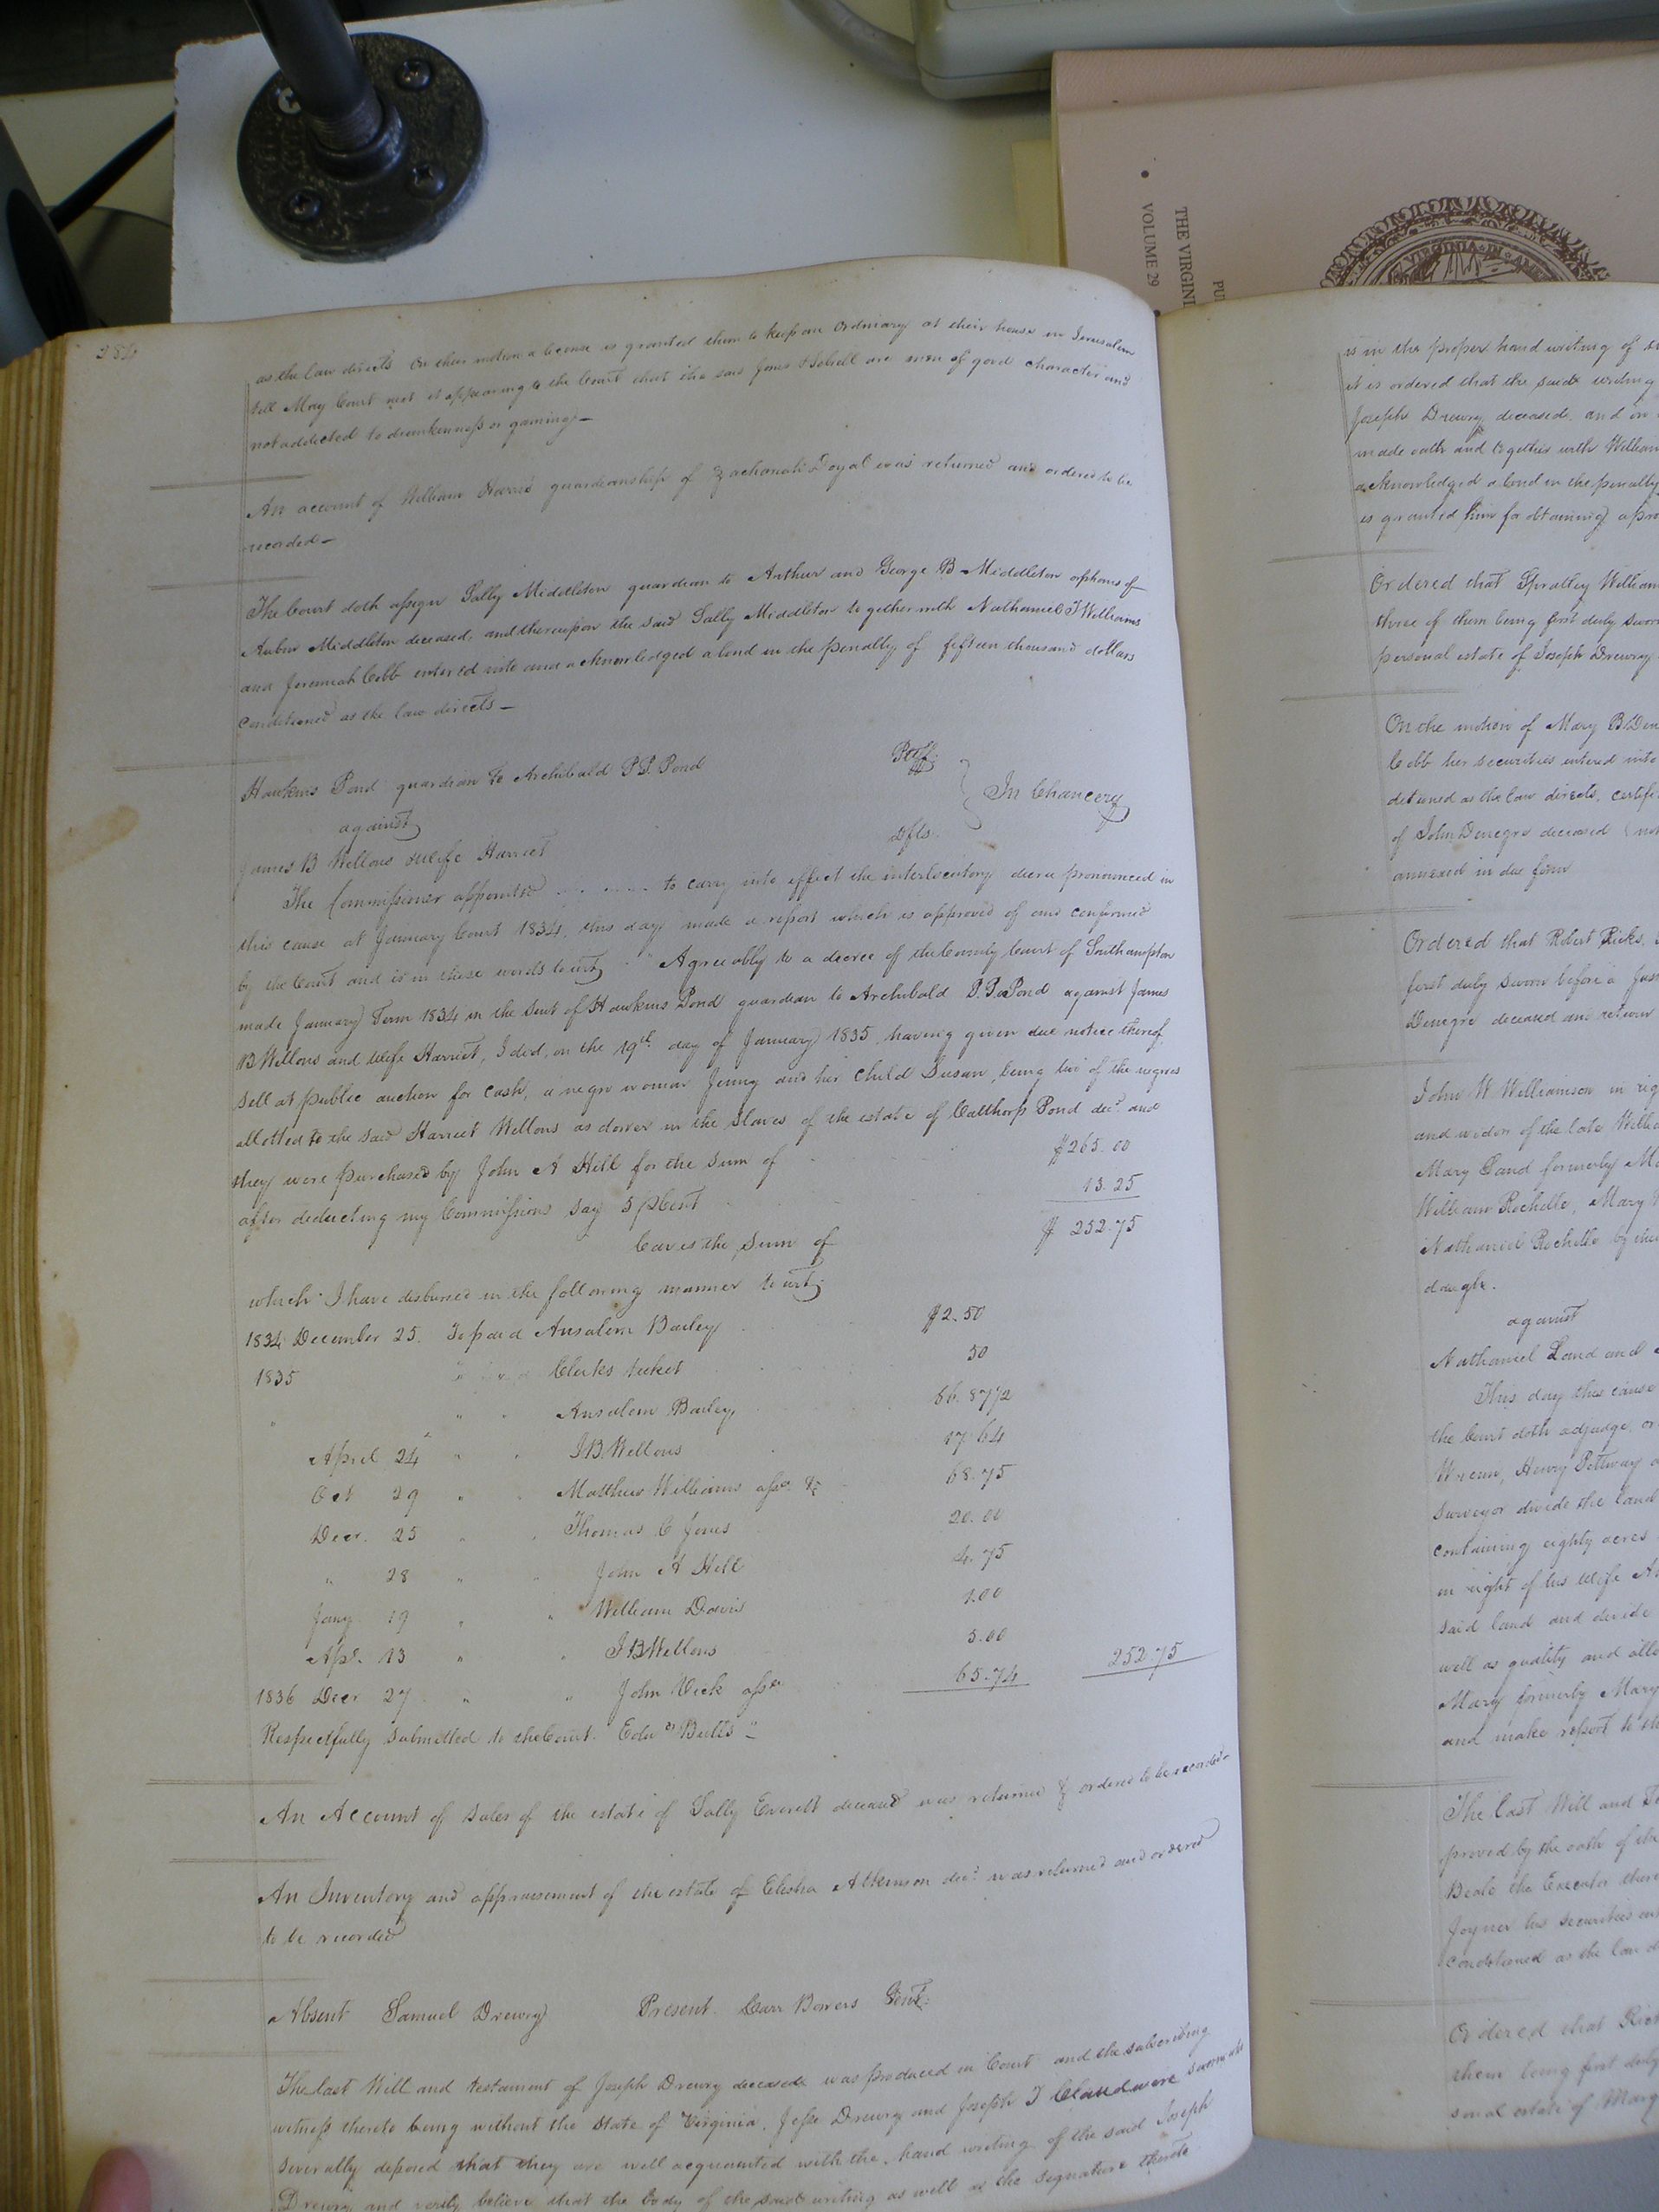 THE VIRGINI
VOLUME 29
PU
VIRGINIA IN AMER
as the law directs On their motion a license is granted them to keep an Ordinary at their house in Jerusalem
till May Court next it appearing to the Court that the said Jones & are men of good character and
not addicted to drunkenness or gaming—
An account of William Harris guardianship of Zachariah Doyal was returned and ordered to be
recorded—
The Court doth assign Sally Middleton guardian to Arthur and George B Middleton orphans of
Middleton deceased, and thereupon the said Sally Middleton together with Nathaniel T Williams
and Jeremiah Cobb entered into and acknowledged a bond in the penalty of fifteen thousand dollars
conditioned as the law directs—
Hawkins Pond guardian to Archibald P.P. Pond Pltff.
against In Chancery
James B Wellons & Wife Harriet Dfts.
The Commissioner appointed to carry into effect the interlocutory decree pronounced in
this cause at January Court 1834, this day made a report which is approved of and confirmed
by the Court and is in these words to wit, "Agreeably to a decree of the County Court of Southampton
made January Term 1834 in the suit of Hawkins Pond guardian to Archibald P.P. Pond against James
B Wellons and Wife Harriet, I did, on the 19th day of January 1835, having given due notice thereof,
sell at public auction for cash, a negro woman Jenny and her child Susan, being two of the negroes
allotted to the said Harriet Wellons as dower in the slaves of the estate of Calthorp Pond decd. and
they were purchased by John A Hill for the sum of $265.00
after deducting my Commissions say 5 pCent 13.25
leaves the sum of $ 252.75
which I have disbursed in the following manner to wit,
1834 December 25. To paid Ansalem Bailey $2.50
1835 " Clerks ticket 50
" " " Ansalem Bailey, 66.87 1/2
April 24 " " J B Wellons 17.64
Oct 29 " " Matthew Williams asse. &c 68.75
Decr. 25 " " Thomas C Jones 20.00
" 28 " " John A Hill 4.75
Jany. 19 " " William Davis 1.00
Apr. 13 " " J B Wellons 5.00
1836 Decr 27 " " John Vick asse 65.74 252.75
Respectfully submitted to the Court. Edwd Butts"
An Account of sales of the estate of Sally Everett deceased was returned & ordered to be recorded—
An Inventory and appraisement of the estate of Elisha Atkinson decd. was returned and ordered
to be recorded
Absent Samuel Drewry Present. Carr Bowers Gent:
The last Will and testament of Joseph Drewry deceased was produced in Court and the subscribing
witness thereto being without the State of Virginia, Jesse Drewry and Joseph T Claud were sworn who
severally deposed that they are well acquainted with the hand writing of the said Joseph
Drewry and verily believe that the body of the said writing as well as the signature thereto
is in the proper hand writing of
it is ordered that the said writing
Joseph Drewry deceased. and on
made oath and together with William
acknowledged a bond in the penalty
is granted him for obtaining a pro
Ordered that Spratley William
three of them being first duly sworn
personal estate of Joseph Drewry
On the motion of Mary B Den
Cobb her securities entered into
ditioned as the law directs, certifi
of John Denegre deceased
annexed in due form
Ordered that Robert Ricks,
first duly sworn before a Jus
Denegre deceased and return
John W Williamson in rig
and widow of the late Willia
Mary Land formerly M
William Rochelle, Mary
Nathaniel Rochelle by the
dough.
against
Nathaniel Land and
This day this cause
the Court doth adjudge, or
Wrenn, Henry Pettway
Surveyor divide the land
containing eighty acres
in right of his wife
said land and divide
well as quality and all
Mary formerly Mary
and make report to th
The last Will and T
proved by the oath of th
Beale the Executor there
Joyner his securities en
conditioned as the law d
Ordered that Ric
them being first duly
sonal estate of Marg